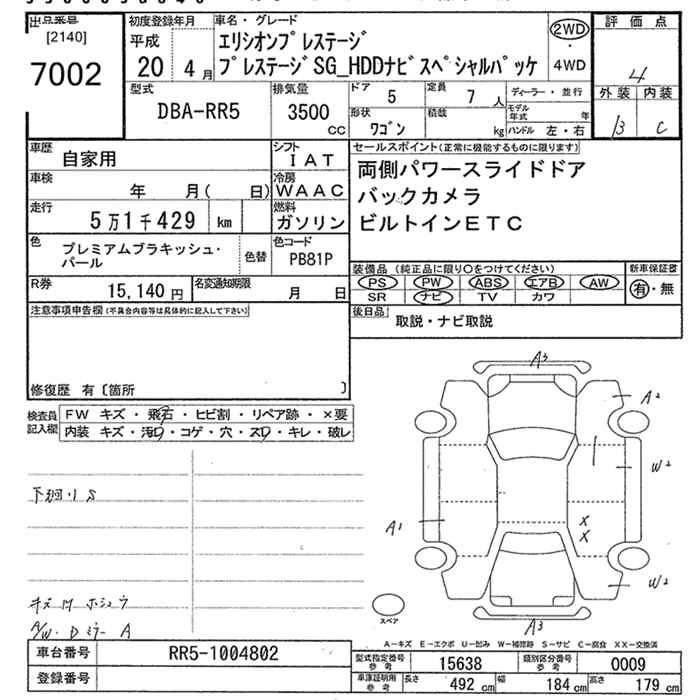 出品番号
[2140]
7002
初度登録年月
平成
20 4月
車名・グレード
エリシオンプレステージ
プレステージSG_HDDナビスペシャルパッケ
2WD
・
4WD
評価点
4
外装 内装
B C
型式
DBA-RR5
排気量
3500
CC
ドア 5
定員 7 人
形状
ワゴン
積哉
kg
ディーラー・並行
モデル年式 年
ハンドル 左・右
車歴
自家用
シフト
IAT
車検
年 月( 日)
冷房
WAAC
走行
5万1千429 km
燃料
ガソリン
色
プレミアムブラキッシュ・
パール
色替
色コード
PB81P
R券
15,140 円
名変通知期限
月 日
セールスポイント(正常に機能するものに限ります)
両側パワースライドドア
バックカメラ
ビルトインETC
装備品 (純正品に限り○をつけてください)
新車保証書
PS PW ABS エアB AW
有・無
SR ナビ TV カワ
後日品
取説・ナビ取説
注意事項申告欄(不具合内容等は具体的に記入して下さい)
修復歴 有〔箇所 〕
検査員
記入欄
FW キズ・飛石・ヒビ割・リペア跡・×要
内装 キズ・汚レ・コゲ・穴・スレ・キレ・破レ
下廻り S
キズ 凹 ホシュウ
A/W・Dミラー A
A3
A2
W2
A1
X
X
W2
A3
スペア
A－キズ E－エクボ U－凹み W－補修跡 S－サビ C－腐食 XX－交換済
車台番号
RR5-1004802
登録番号
型式指定番号
参考
15638
類別区分番号
参考
0009
車庫証明用
参考
長さ 492 cm 幅 184 cm 高さ 179 cm